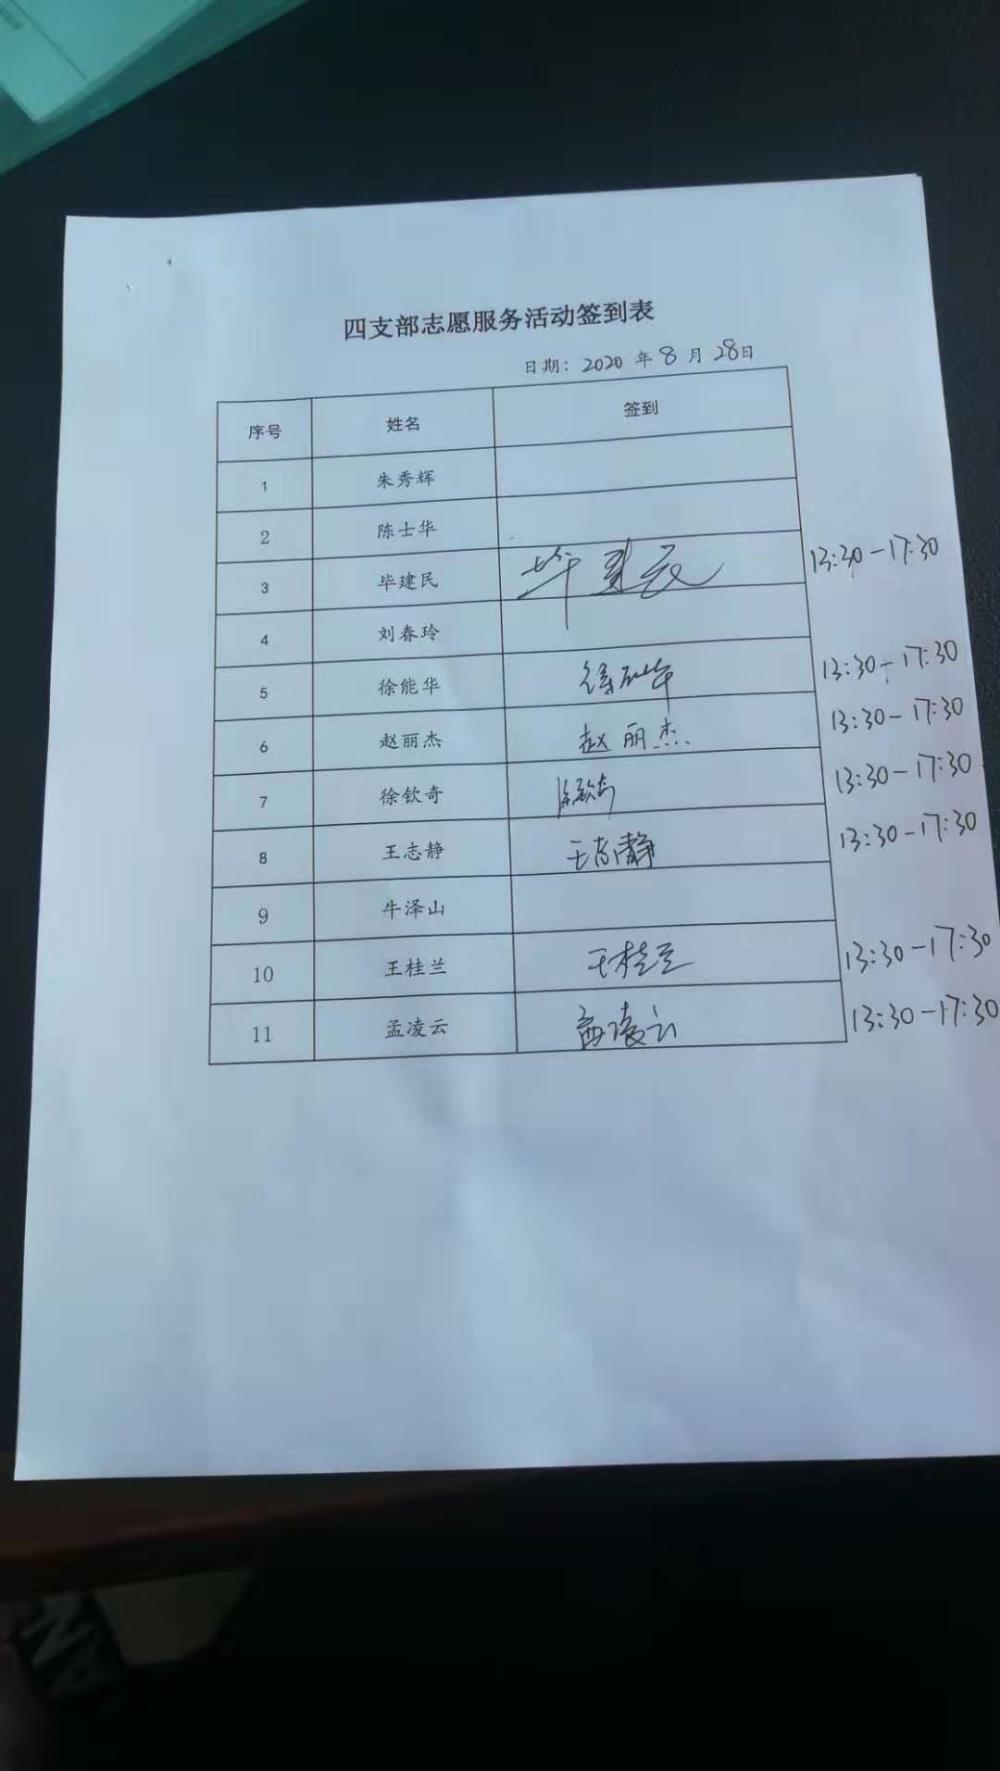 四支部志愿服务活动签到表
日期：2020 年 8 月 28日
序号 姓名 签到
1 朱秀辉
2 陈士华
3 毕建民 毕建民 13:30-17:30
4 刘春玲
5 徐能华 徐能华 13:30-17:30
6 赵丽杰 赵丽杰 13:30-17:30
7 徐钦奇 徐钦奇 13:30-17:30
8 王志静 王志静 13:30-17:30
9 牛泽山
10 王桂兰 王桂兰 13:30-17:30
11 孟凌云 孟凌云 13:30-17:30